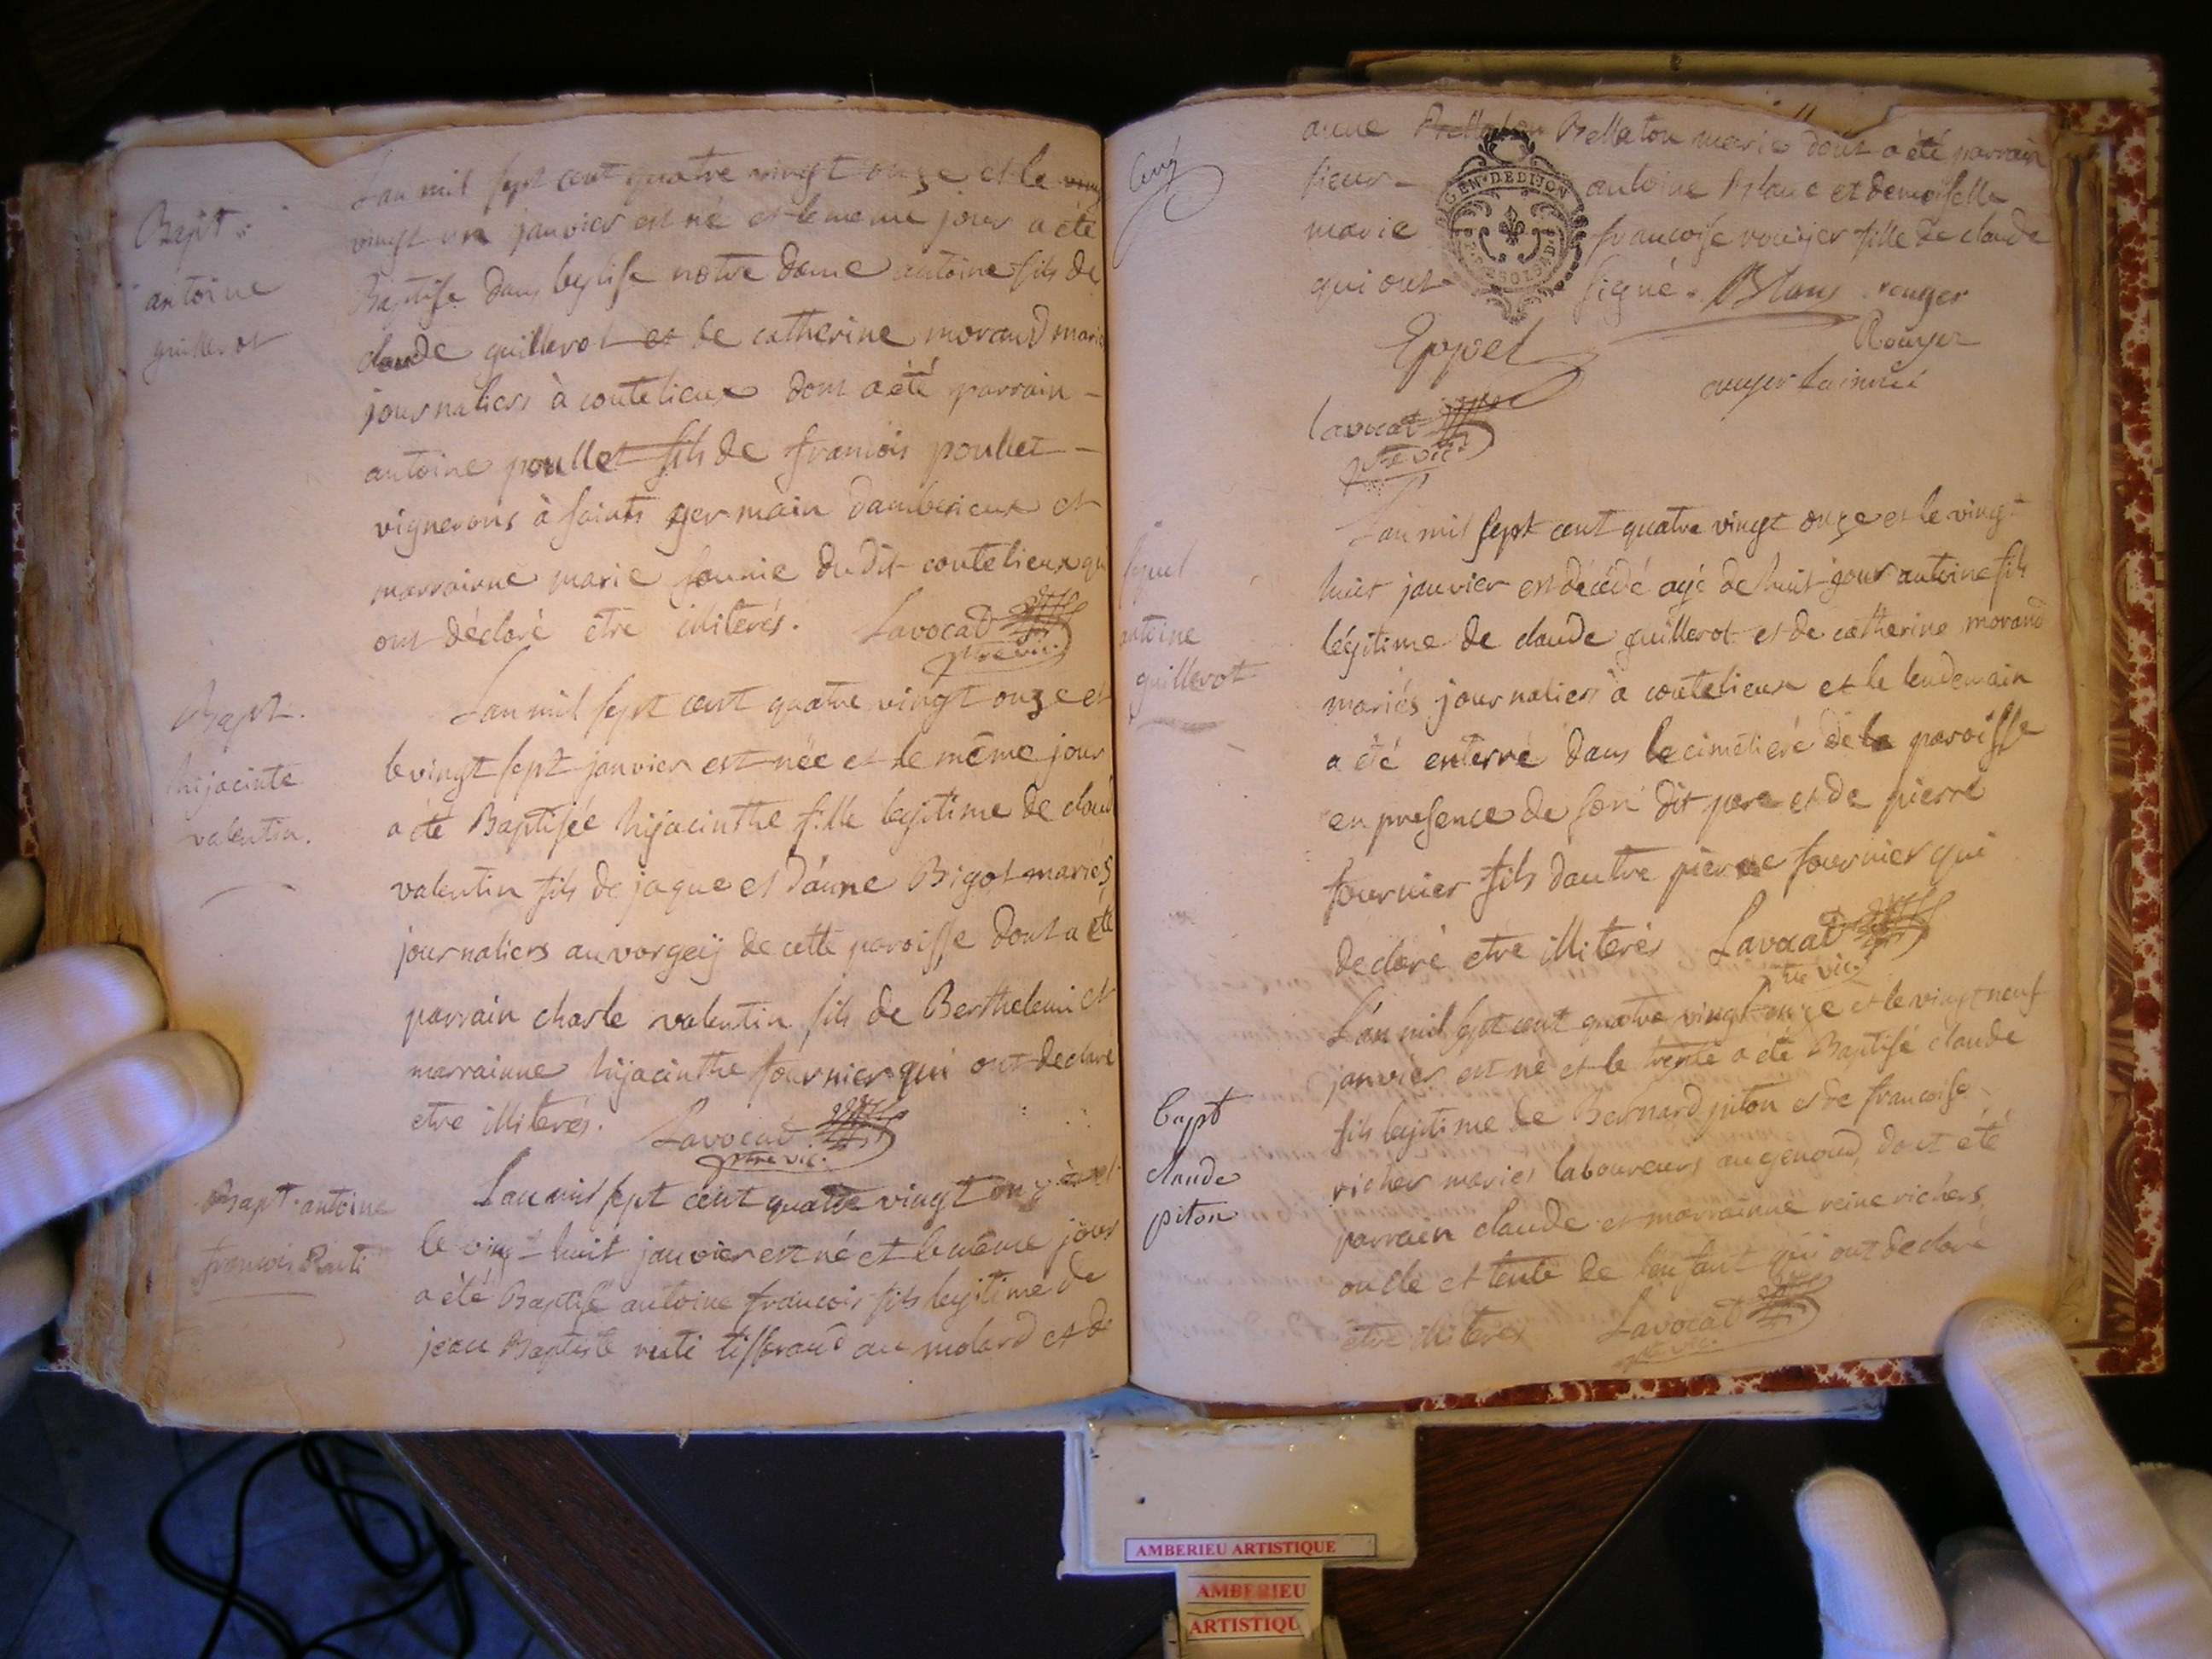 Bapt.
antoine
guillerot
Lan mil sept cent quatre vingt onze et le
vingt un janvier est né et le meme jour a été
Baptisé dans leglise notre dame antoine fils de
claude guillerot et de catherine morand marié
journaliers à coutelieux dont a été parrain
antoine poullet fils de francois poullet
vignerons à saint germain damberieux et
marrainne marie fournie dudit coutelieux qui
ont déclaré être illiterés. Lavocat
ptre vic.
Bapt.
hijacinte
valentin.
Lan mil sept cent quatre vingt onze et
le vingt sept janvier est née et le même jour
a été Baptisée hijacinthe fille legitime de claude
valentin fils de jaque et d'anne Bigot mariés
journaliers au vorgeij de cette paroisse dont a été
parrain charle valentin fils de Berthelemi et
marrainne hijacinthe fournier qui ont declare
etre illiterés. Lavocat
ptre vic.
Bapt. antoine
francois Ruti
Lan mil sept cent quatre vingt onze et
le vingt huit janvier est né et le même jour
a été Baptisé antoine francois fils legitime de
jean Baptiste ruti tisserand au molard et de
anne Bellaton marie dont a été parrain
sieur antoine blanc et demoiselle
marie francoise rouyer fille de claude
qui ont signé. Blanc rouyer
GEN. DE DIJON
Eppel
Rouyer
rouyer
Lavocat
ptre vic.
sepul
antoine
guillerot
Lan mil sept cent quatre vingt onze et le vingt
huit janvier est décédé agé de huit jour antoine fils
légitime de claude guillerot et de catherine morand
mariés journaliers à coutelieux et le lendemain
a été enterré dans le cimetiere de la paroisse
en presence de son dit pere et de pierre
fournier fils dautre pierre fournier qui
declaré etre illiterés Lavocat
ptre vic.
bapt
claude
piton
L'an mil sept cent quatre vingt onze et le vingt neuf
janvier est né et le trente a été Baptisé claude
fils legitime de Bernard piton et de francoise
richer mariés laboureurs au genoud, dont été
parrain claude et marrainne reine richers
oncle et tente de l'enfant qui ont declaré
etre illiterés Lavocat
ptre vic.
AMBERIEU ARTISTIQUE
AMBERIEU
ARTISTIQU